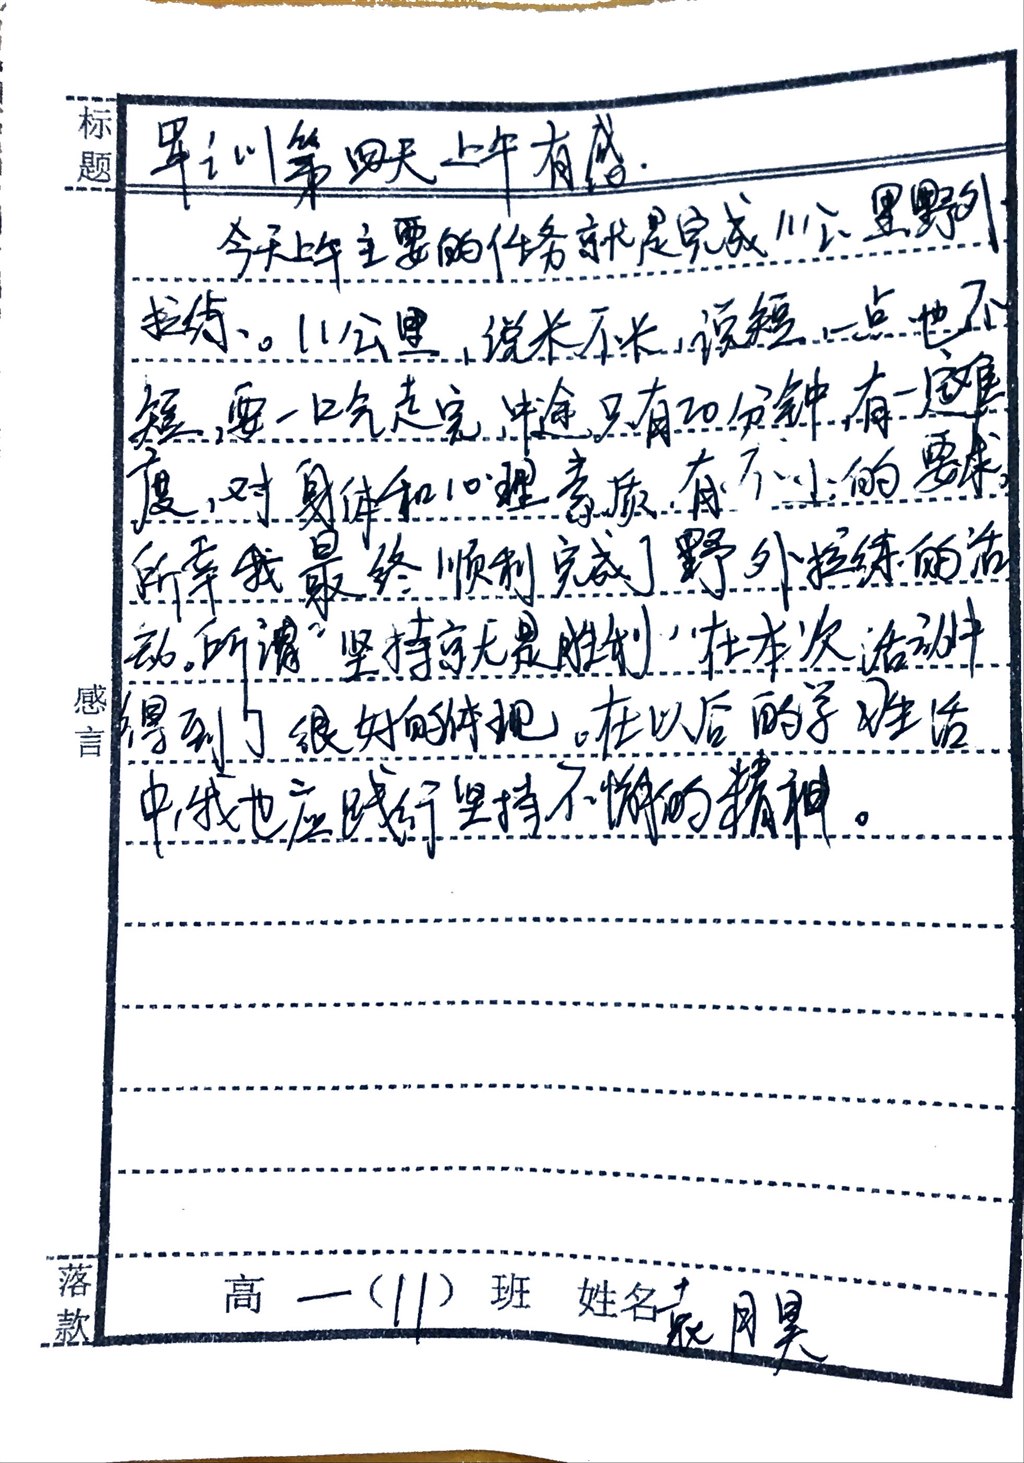 标题
军训第四天上午有感.
今天上午主要的任务就是完成11公里野外
拉练。11公里,说长不长,说短,一点也不
短,要一口气走完,中途只有20分钟,有一定难
度,对身体和心理素质有不小的要求,
所幸我最终顺利完成了野外拉练的活
动。所谓“坚持就是胜利”在本次活动中
得到了很好的体现。在以后的学习生活
中,我也应践行坚持不懈的精神。
感言
落款
高一(11)班 姓名袁月昊